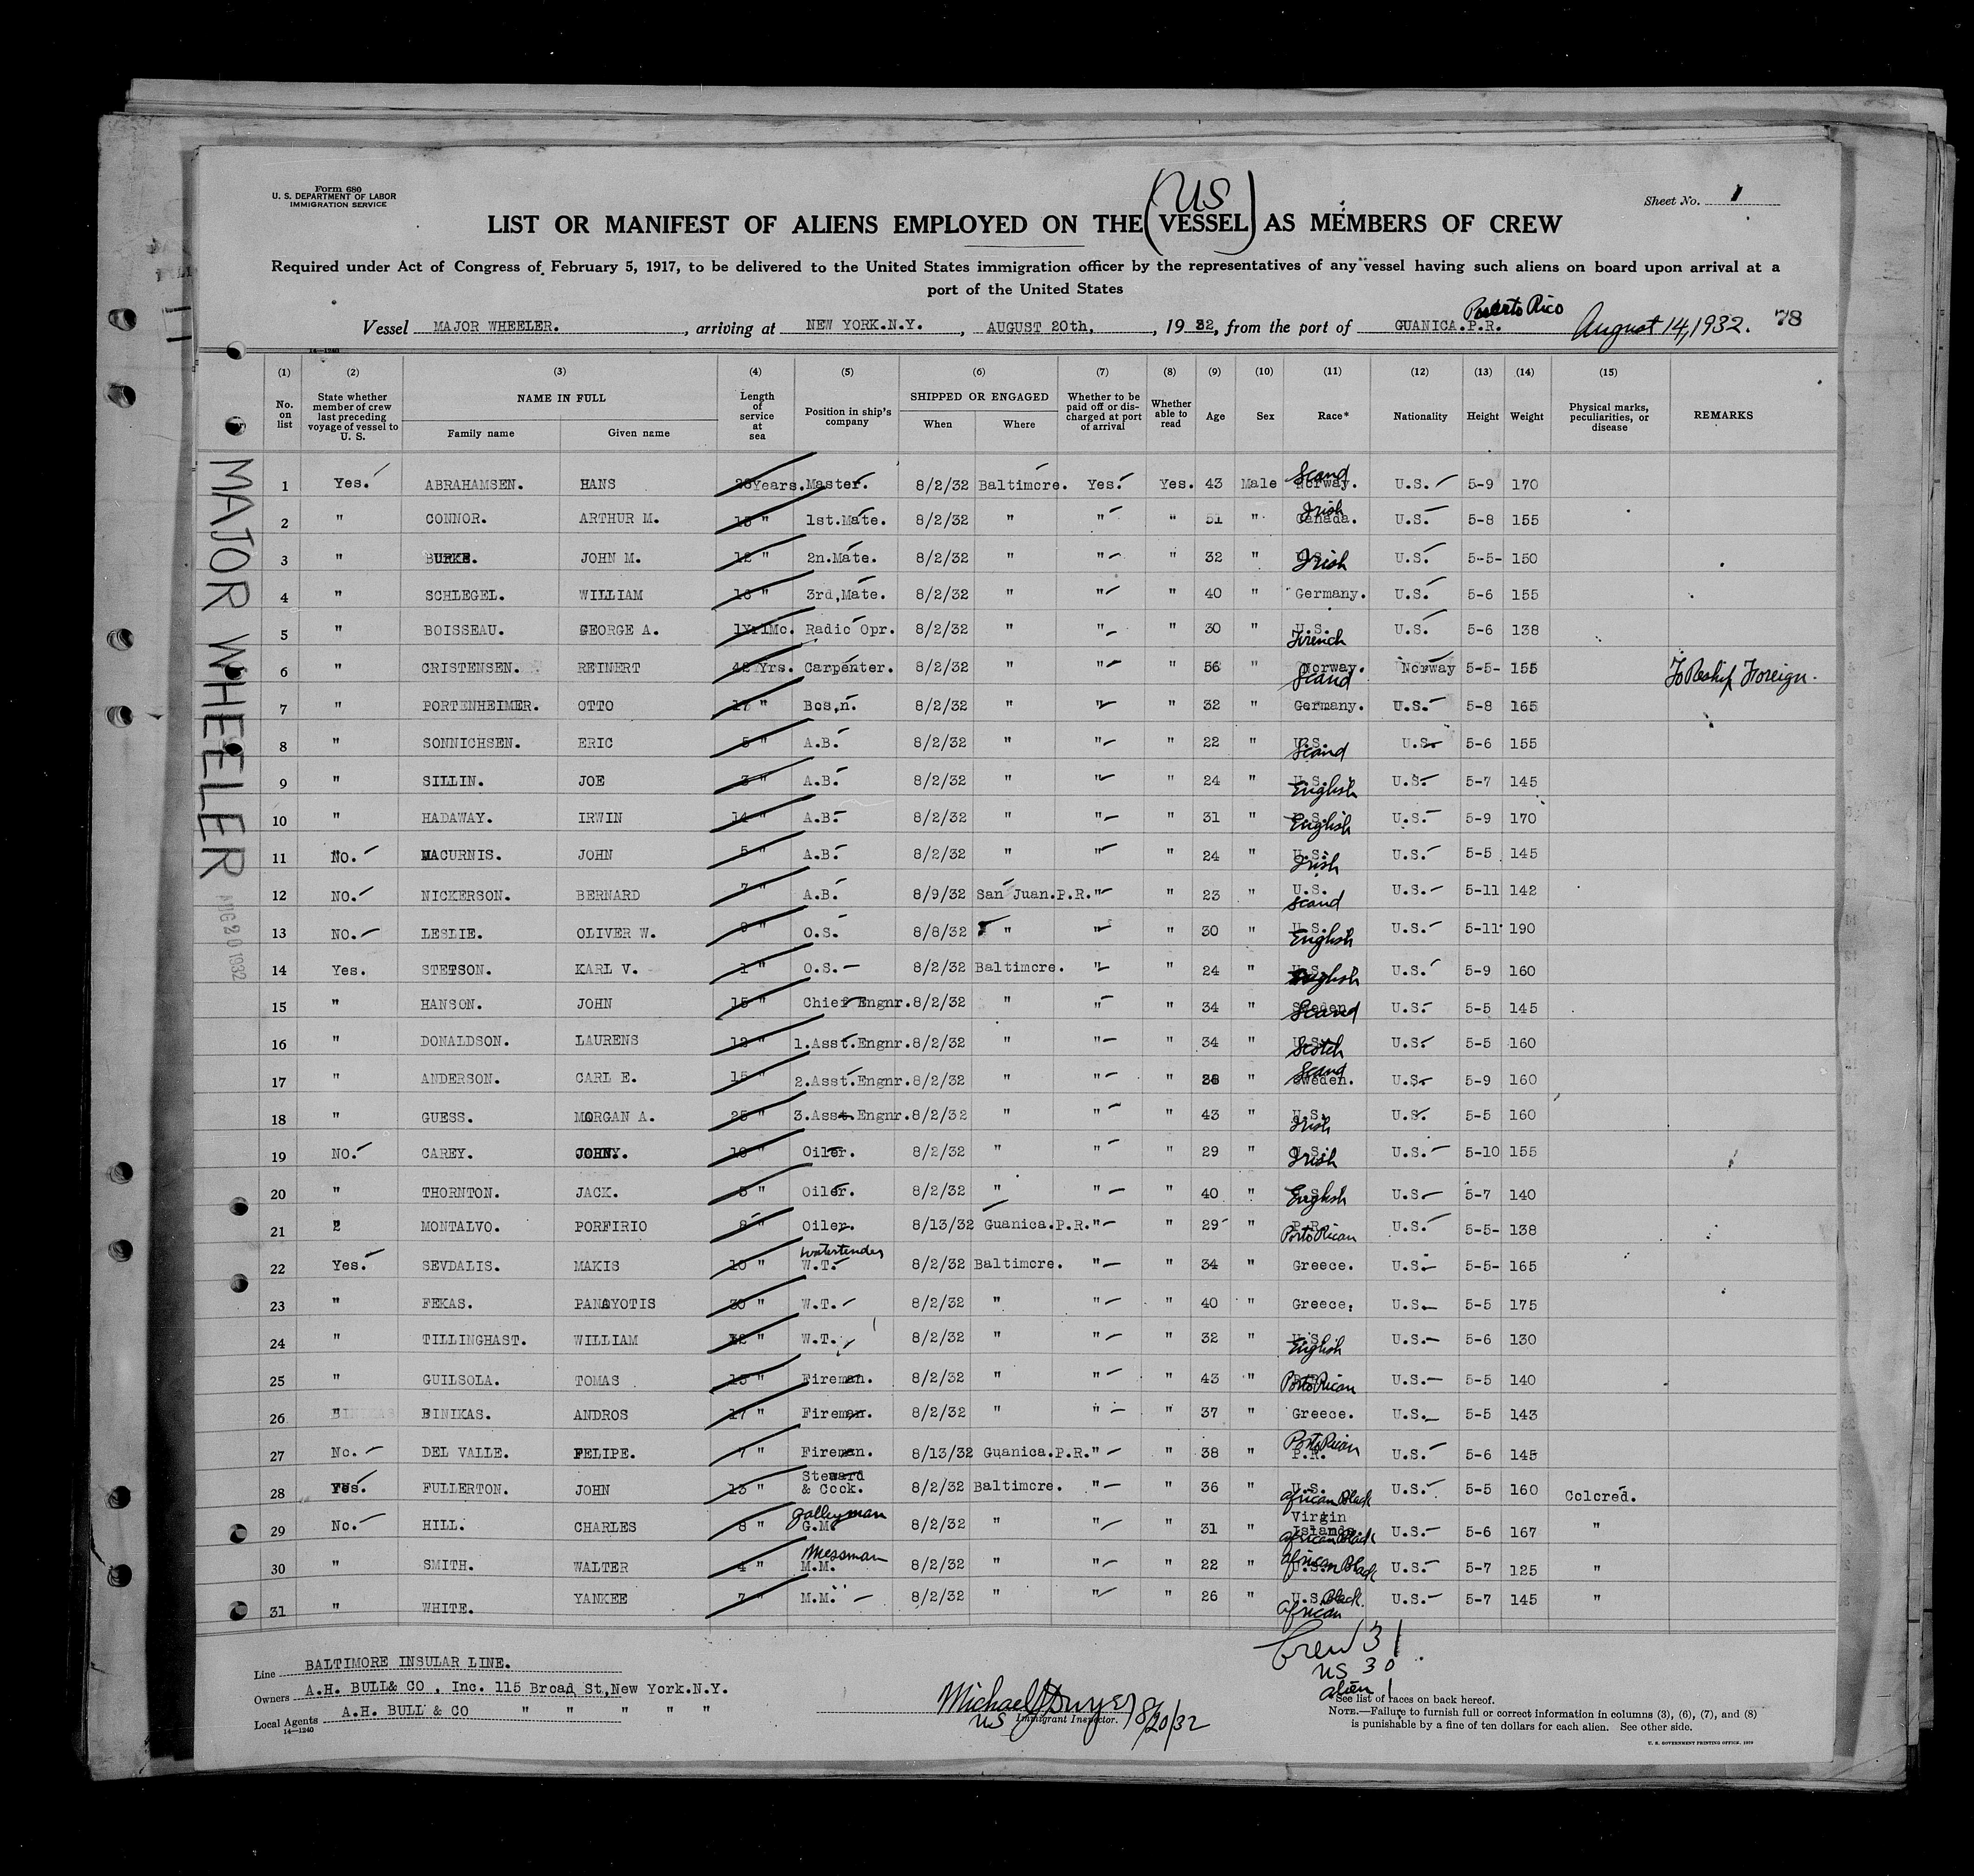 Form 680
U. S. DEPARTMENT OF LABOR
IMMIGRATION SERVICE
Sheet No. 1
US
LIST OR MANIFEST OF ALIENS EMPLOYED ON THE (VESSEL) AS MEMBERS OF CREW
Required under Act of Congress of February 5, 1917, to be delivered to the United States immigration officer by the representatives of any vessel having such aliens on board upon arrival at a
port of the United States
Porto Rico
Vessel MAJOR WHEELER. , arriving at NEW YORK.N.Y. , AUGUST 20th, , 19 32, from the port of GUANICA.P.R. August 14, 1932. 78
14—1240
(1) (2) (3) (4) (5) (6) (7) (8) (9) (10) (11) (12) (13) (14) (15)
No. on list
State whether member of crew last preceding voyage of vessel to U. S.
NAME IN FULL
Family name
Given name
Length of service at sea
Position in ship's company
SHIPPED OR ENGAGED
When
Where
Whether to be paid off or discharged at port of arrival
Whether able to read
Age
Sex
Race*
Nationality
Height
Weight
Physical marks, peculiarities, or disease
REMARKS
MAJOR WHEELER
AUG 20 1932
1 Yes. ABRAHAMSEN. HANS 28Years. Master. 8/2/32 Baltimore. Yes. Yes. 43 Male Norway. Scand U.S. 5-9 170
2 " CONNOR. ARTHUR M. 13 " 1st.Mate. 8/2/32 " " " 51 " Canada. Irish U.S. 5-8 155
3 " BURKE. JOHN M. 12 " 2n.Mate. 8/2/32 " " " 32 " Irish U.S. 5-5- 150
4 " SCHLEGEL. WILLIAM 16 " 3rd,Mate. 8/2/32 " " " 40 " Germany. U.S. 5-6 155
5 " BOISSEAU. GEORGE A. 1Yr1Mo. Radio Opr. 8/2/32 " " " 30 " U.S. French U.S. 5-6 138
6 " CRISTENSEN. REINERT 42 Yrs. Carpenter. 8/2/32 " " " 56 " Norway. Scand Norway 5-5- 155 To Reship Foreign.
7 " PORTENHEIMER. OTTO 17 " Bos,n. 8/2/32 " " " 32 " Germany. U.S. 5-8 165
8 " SONNICHSEN. ERIC 5 " A.B. 8/2/32 " " " 22 " U.S. Scand U.S. 5-6 155
9 " SILLIN. JOE 3 " A.B. 8/2/32 " " " 24 " U.S. English U.S. 5-7 145
10 " HADAWAY. IRWIN 14 " A.B. 8/2/32 " " " 31 " U.S. English U.S. 5-9 170
11 No. MACURNIS. JOHN 5 " A.B. 8/2/32 " " " 24 " U.S. Irish U.S. 5-5 145
12 No. NICKERSON. BERNARD 7 " A.B. 8/9/32 San Juan.P.R. " " 23 " U.S. Scand U.S. 5-11 142
13 No. LESLIE. OLIVER W. 9 " O.S. 8/8/32 " " " 30 " U.S. English U.S. 5-11 190
14 Yes. STETSON. KARL V. 1 " O.S. 8/2/32 Baltimore. " " 24 " U.S. English U.S. 5-9 160
15 " HANSON. JOHN 15 " Chief Engnr. 8/2/32 " " " 34 " Sweden Scand U.S. 5-5 145
16 " DONALDSON. LAURENS 12 " 1.Asst.Engnr. 8/2/32 " " " 34 " U.S. Scotch U.S. 5-5 160
17 " ANDERSON. CARL E. 15 " 2.Asst.Engnr. 8/2/32 " " " " Sweden. Scand U.S. 5-9 160
18 " GUESS. MORGAN A. 25 " 3.Asst.Engnr. 8/2/32 " " " 43 " U.S. Irish U.S. 5-5 160
19 No. CAREY. JOHN. 10 " Oiler. 8/2/32 " " " 29 " U.S. Irish U.S. 5-10 155
20 " THORNTON. JACK. 5 " Oiler. 8/2/32 " " " 40 " U.S. English U.S. 5-7 140
21 " MONTALVO. PORFIRIO 8 " Oiler. 8/13/32 Guanica.P.R. " " 29 " P.R. Porto Rican U.S. 5-5- 138
22 Yes. SEVDALIS. MAKIS 10 " watertender W.T. 8/2/32 Baltimore. " " 34 " Greece. U.S. 5-5- 165
23 " FEKAS. PANAYOTIS 30 " W.T. 8/2/32 " " " 40 " Greece, U.S. 5-5 175
24 " TILLINGHAST. WILLIAM 12 " W.T. 8/2/32 " " " 32 " U.S. English U.S. 5-6 130
25 " GUILSOLA. TOMAS 15 " Fireman. 8/2/32 " " " 43 " Porto Rican U.S. 5-5 140
26 " BINIKAS. ANDROS 17 " Fireman. 8/2/32 " " " 37 " Greece. U.S. 5-5 143
27 No. DEL VALLE. FELIPE. 7 " Fireman. 8/13/32 Guanica.P.R. " " 38 " P.R. Porto Rican U.S. 5-6 145
28 Yes. FULLERTON. JOHN 13 " Steward & Cook. 8/2/32 Baltimore. " " 36 " U.S. African Black U.S. 5-5 160 Colored.
29 No. HILL. CHARLES 8 " Galleyman G.M. 8/2/32 " " " 31 " Virgin Islands. African Black U.S. 5-6 167 "
30 " SMITH. WALTER 4 " Messman M.M. 8/2/32 " " " 22 " U.S. African Black U.S. 5-7 125 "
31 " WHITE. YANKEE 7 " M.M. 8/2/32 " " " 26 " U.S. African Black U.S. 5-7 145 "
Crew 31
US 30
alien 1
Line BALTIMORE INSULAR LINE.
Owners A.H. BULL& CO , Inc. 115 Broad St,New York.N.Y.
Local Agents A.H. BULL & CO " " " " "
14—1240
Michael Dwyer 8/20/32
US Immigrant Inspector.
*See list of races on back hereof.
NOTE.—Failure to furnish full or correct information in columns (3), (6), (7), and (8)
is punishable by a fine of ten dollars for each alien. See other side.
U. S. GOVERNMENT PRINTING OFFICE. 1929